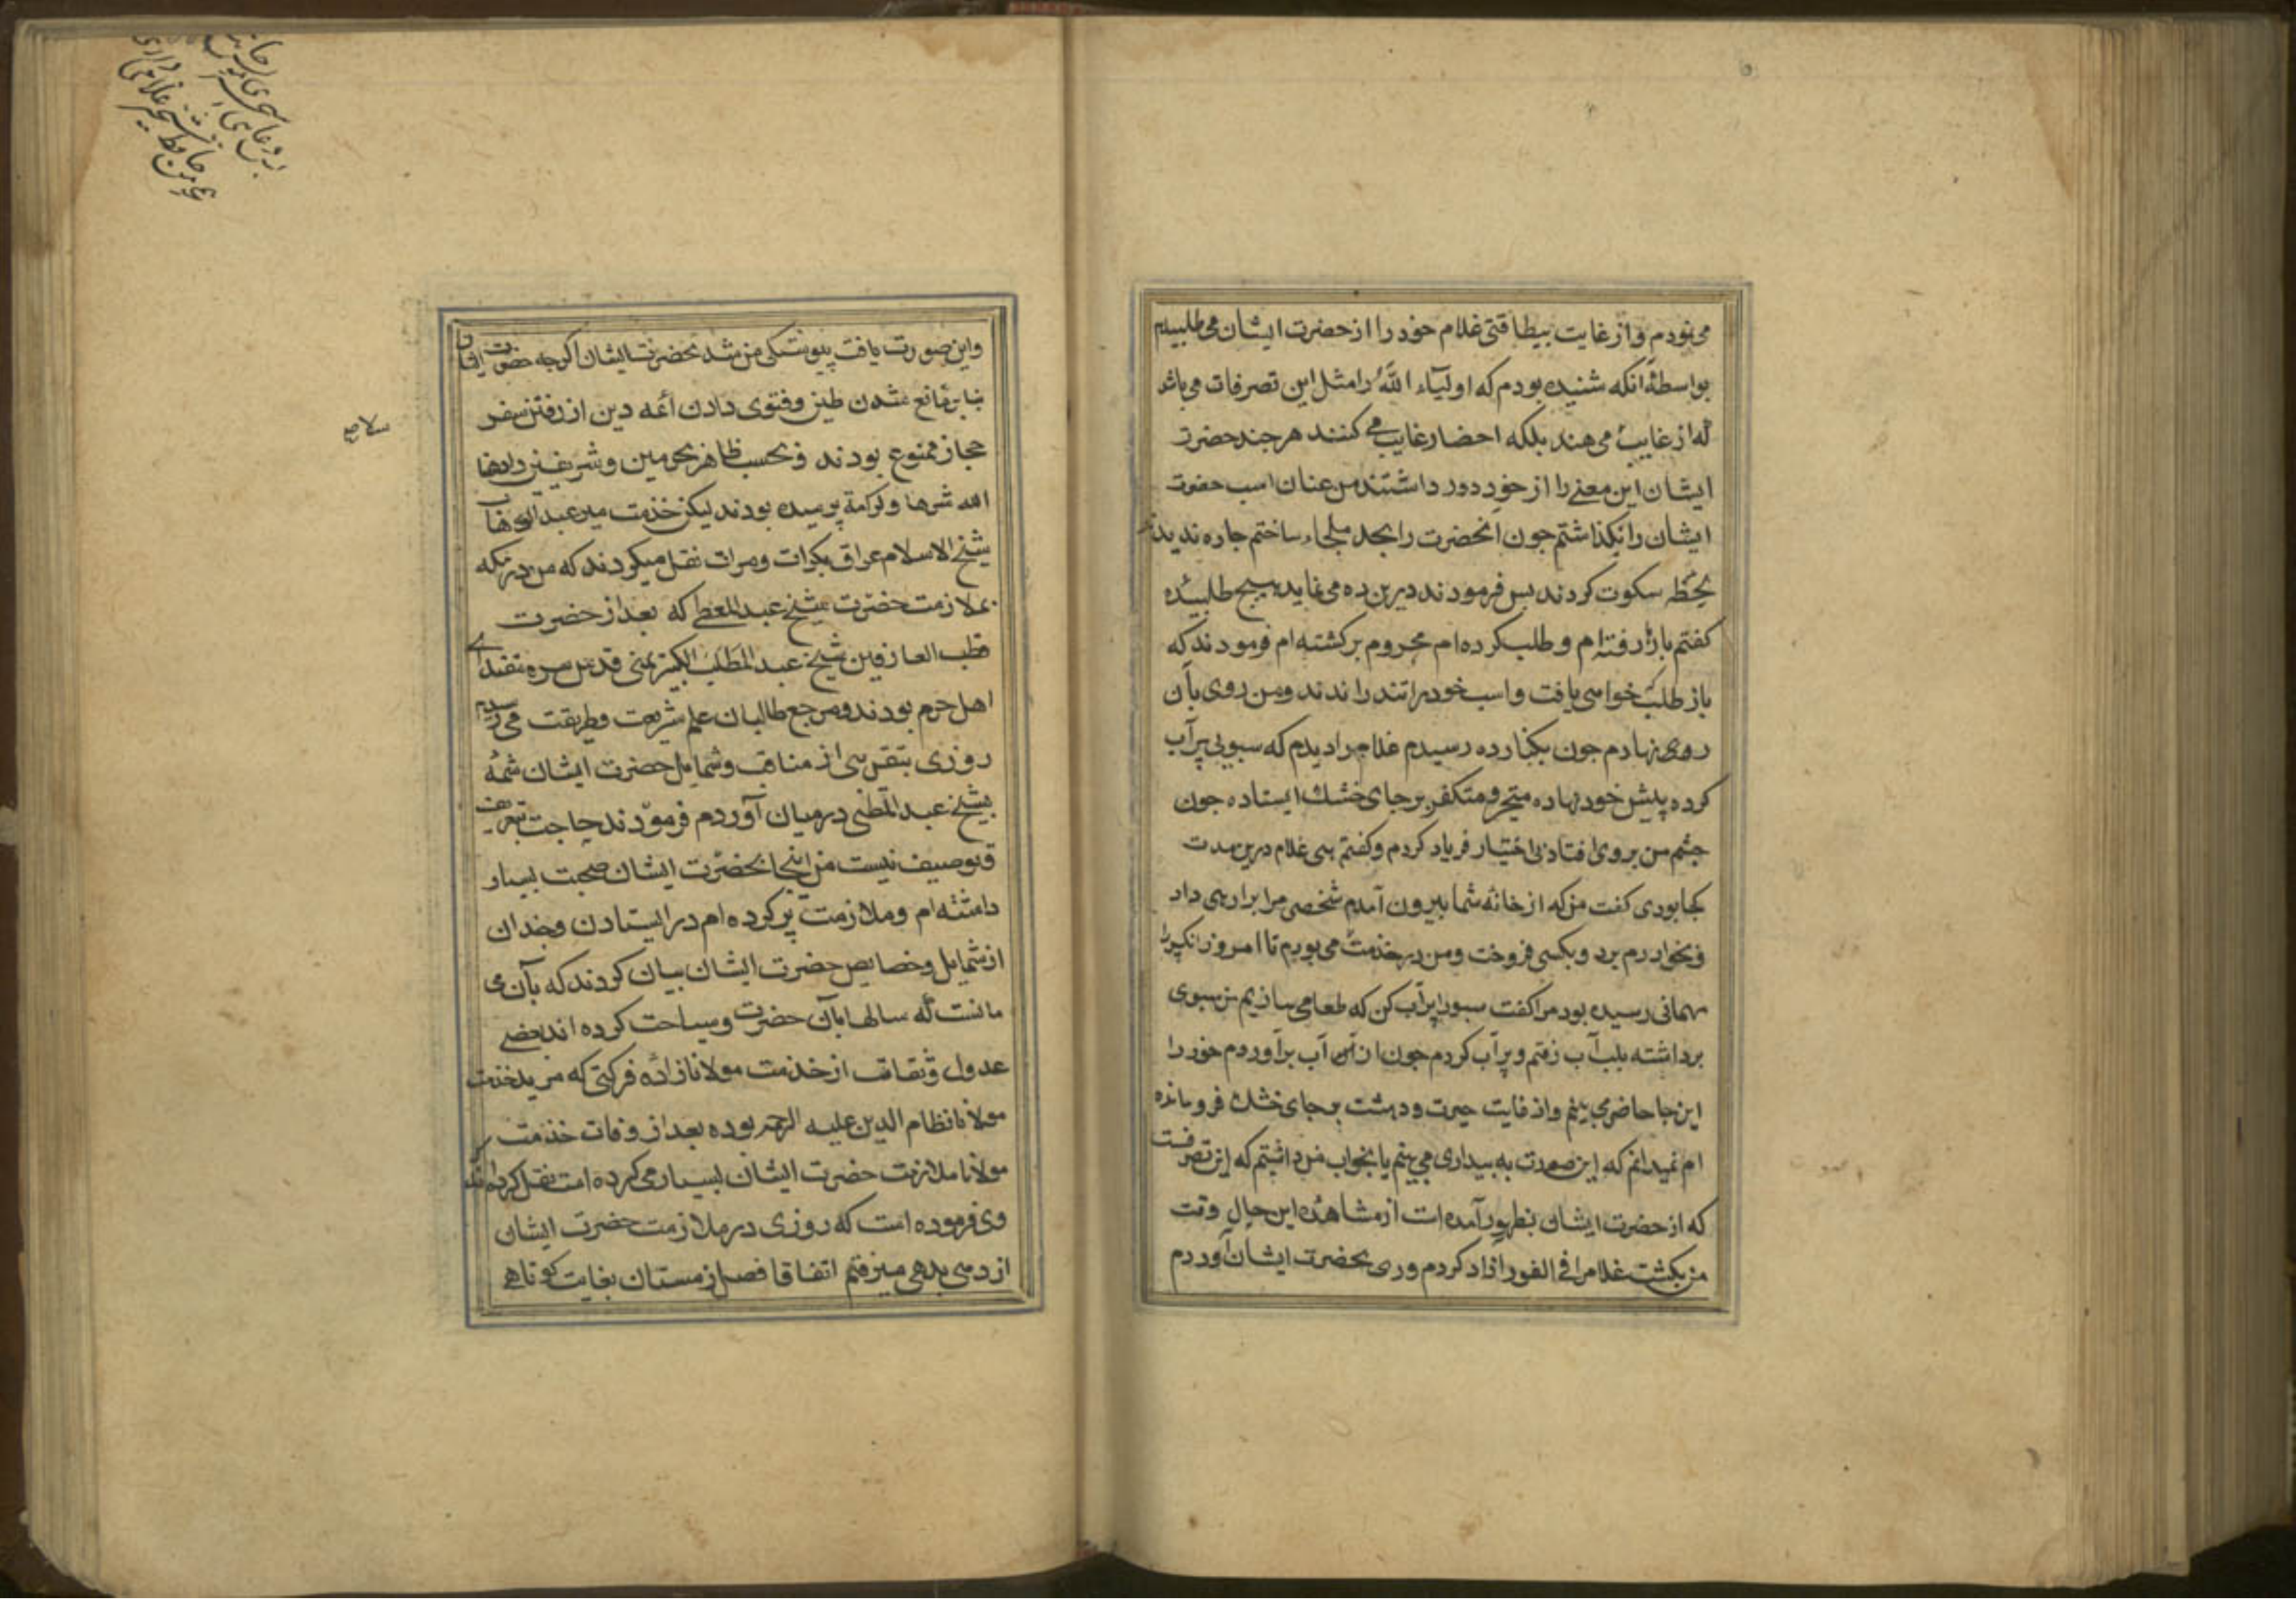 می نمودم و از غایت بیطاقتی غلام خود را از حضرت ایشان می طلبیدم
بواسطهٔ انکه شنیده بودم که اولیآء اللّه را مثل این تصرفات می باشد
که از غایب می هند بلکه احضار غایب می کنند هر چند حضرت
ایشان این معنے را از خود دور داشتند من عنان اسب حضرت
ایشان را نکذاشتم جون انحضرت را بجد ملجاء ساختم جاره ندیدند
لحظه سکوت کردند بس فرمودند درین ده می نماید هیچ طلبیدهٔ
کفتم بارها رفته ام و طلب کرده ام محروم برکشته ام فرمودند که
باز طلب خواهی یافت و اسب خود را تند راندند و من روی بآن
روی نهادم جون بکنار ده رسیدم غلام را دیدم که سبویی پر آب
کرده پیش خود نهاده متحیر و متفکر بر جای خشک ایستاده جون
جشم من بر وی افتاد بی اختیار فریاد کردم و کفتم هی غلام درین مدت
کجا بودی کفت من که از خانهٔ شما بیرون آمدم شخصی مرا برد
و بخوارزم برد و بکسی فروخت و من در خدمت می بودم تا امروز
مهمانی رسیده بود مرا کفت سبو را پر آب کن که طعامی سازیم من سبوی
برداشته بلب آب رفتم و پر آب کردم جون از آن آب برآوردم خود را
این جا حاضر می بینم و از غایت حیرت و دهشت بر جای خشک فرو مانده
ام نمیدانم که این صورت به بیداری می بینم یا بخواب من دانستم که این تصرفست
که از حضرت ایشان بظهور آمده است از مشاهدهٔ این حال وقت
من بکشت غلام را فی الفور ازاد کردم و روی بحضرت ایشان آوردم
و این صورت یافت پیوستکی من شد بحضرت ایشان اکرچه حضرت ایشان
بنابر مانع شدن و فتوی دادن ائمه دین از رفتن سفر
حجاز ممنوع بودند و بحسب ظاهر بحرمین و شریفین زادهما
الله شرفا و کرامة نرسیده بودند لیکن خدمت میر عبد
شیخ الاسلام عراق بکرات و مرات نقل میکردند که من در مکه
بملازمت حضرت شیخ عبد المعطی که بعد از حضرت
قطب العارفین شیخ عبد المطلب الکبیر یمنی قدس سره مقتدای
اهل حرم بودند و مرجع طالبان علم شریعت و طریقت می رسیدم
روزی بتقریبی از مناقب و شمایل حضرت ایشان شمهٔ
بشیخ عبد المعطی در میان آوردم فرمودند حاجت تعریف
و توصیف نیست من اینجا بحضرت ایشان صحبت بسیار
داشته ام و ملازمت پر کرده ام در ایستادن و چندان
از شمایل و خصایص حضرت ایشان بیان کردند که بآن می
مانست که سالها بآن حضرت و سیاحت کرده اند بعضے
عدول و ثقات از خدمت مولانا زاده فرکتی که مرید خدمت
مولانا نظام الدین علیه الرحمه بوده بعد از وفات خدمت
مولانا ملازمت حضرت ایشان بسیار می کرده است نقل کرده اند که
وی فرموده است که روزی در ملازمت حضرت ایشان
از دهی بدهی میرفتم اتفاقا فصل زمستان بغایت کوتاهی